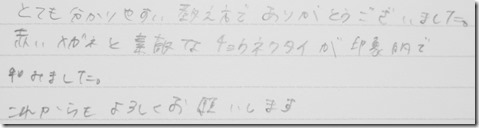 とても分かりやすい教え方でありがとうございました。
赤いメガネと素敵なチョウネクタイが印象的で
和みました。
これからもよろしくお願いします